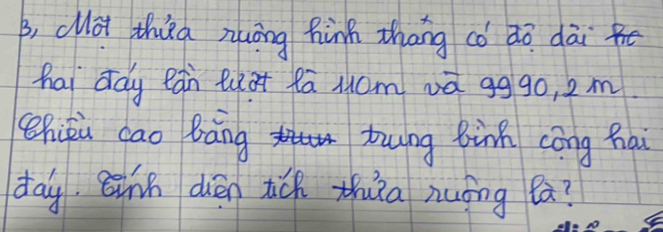 B, Một thửa ruộng hình thang có độ dài
hai đáy lần lượt là 110m và 9990,2 m.
Chiều cao bằng trung bình cộng hai
đáy. Tính diện tích thửa ruộng là?